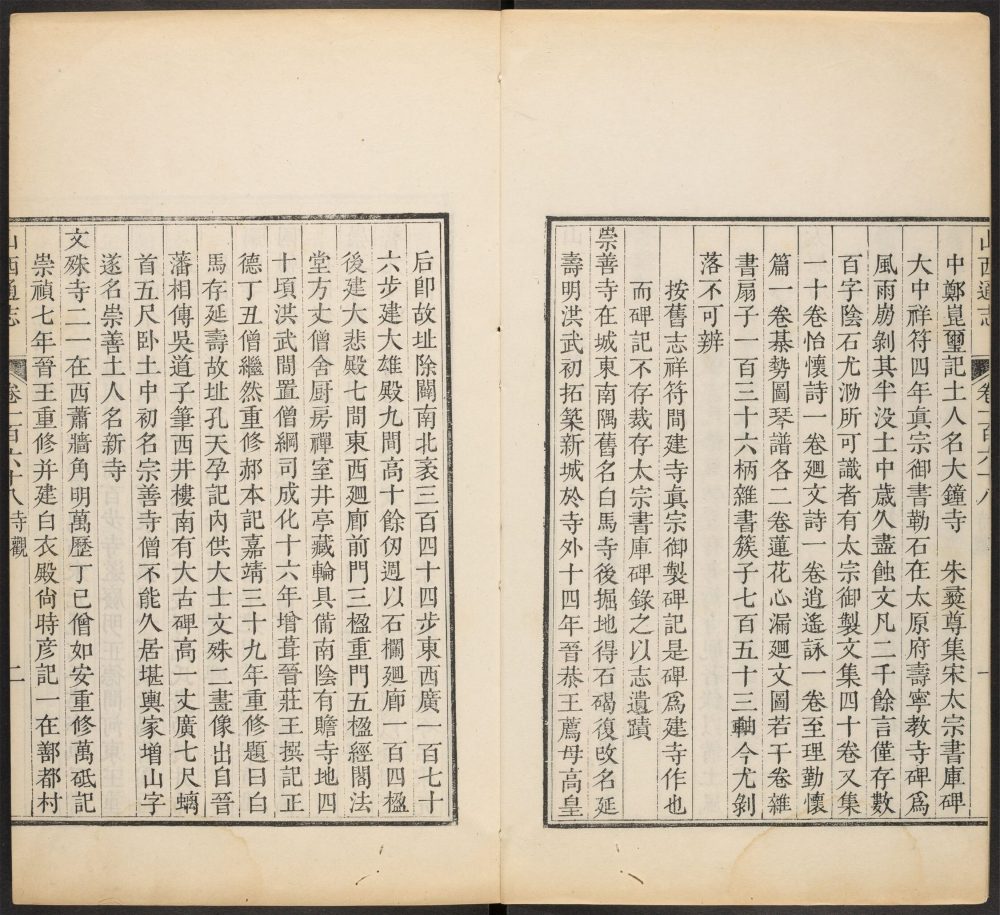 山西通志 卷一百六十八 一
中鄭崑璽記土人名大鐘寺 朱霙尊集宋太宗書庫碑
大中祥符四年真宗御書勒石在太原府壽寧教寺碑爲
風雨崩剝其半没土中歲久盡蝕文凡二千餘言僅存數
百字陰石尤泐所可識者有太宗御製文集四十卷又集
一十卷怡懷詩一卷廻文詩一卷逍遙詠一卷至理勤懷
篇一卷棊勢圖琴譜各二卷蓮花心漏廻文圖若干卷雜
書扇子一百三十六柄雜書簇子七百五十三軸今尤剝
落不可辨
按舊志祥符間建寺真宗御製碑記是碑爲建寺作也
而碑記不存裁存太宗書庫碑錄之以志遺蹟
崇善寺在城東南隅舊名白馬寺後掘地得石碣復改名延
壽明洪武初拓築新城於寺外十四年晉恭王薦母高皇
后卽故址除闢南北袤三百四十四步東西廣一百七十
六步建大雄殿九間高十餘仭週以石欄廻廊一百四楹
後建大悲殿七間東西廻廊前門三楹重門五楹經閣法
堂方丈僧舍厨房禪室井亭藏輪具備南陰有贍寺地四
十頃洪武間置僧綱司成化十六年增葺晉莊王撰記正
德丁丑僧繼然重修郝本記嘉靖三十九年重修題曰白
馬存延壽故址孔天孕記內供大士文殊二畫像出自晉
藩相傳吳道子筆西井樓南有大古碑高一丈廣七尺螭
首五尺卧土中初名宗善寺僧不能久居堪輿家增山字
遂名崇善土人名新寺
文殊寺二一在西蕭牆角明萬歷丁巳僧如安重修萬砥記
崇禎七年晉王重修并建白衣殿尙時彥記一在鄯都村
山西通志 卷一百六十八 寺觀 二